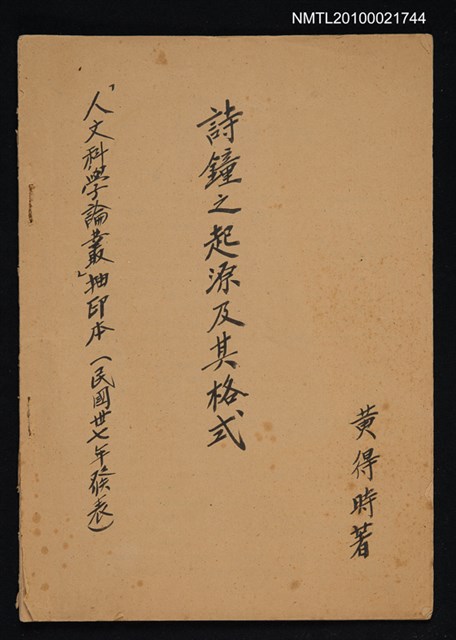 NMTL20100021744
黃得時著
詩鐘之起源及其格式
「人文科學論叢」抽印本（民國卅七年發表）